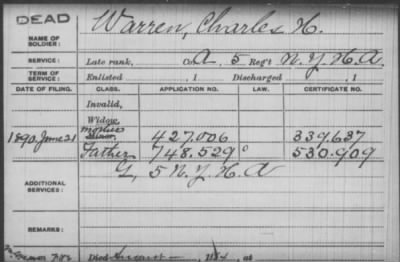 DEAD
NAME OF SOLDIER: Warren, Charles H.
SERVICE: Late rank, Co. A, 5 Reg't N.Y.H.A.
TERM OF SERVICE: Enlisted , 1 Discharged , 1
DATE OF FILING. CLASS. APPLICATION NO. LAW. CERTIFICATE NO.
Invalid,
Widow,
1890, June 21 Mother 427.006 339.637
Father 748.529 530.909
ADDITIONAL SERVICES: G, 5 N.Y.H.A
REMARKS:
Died August , at